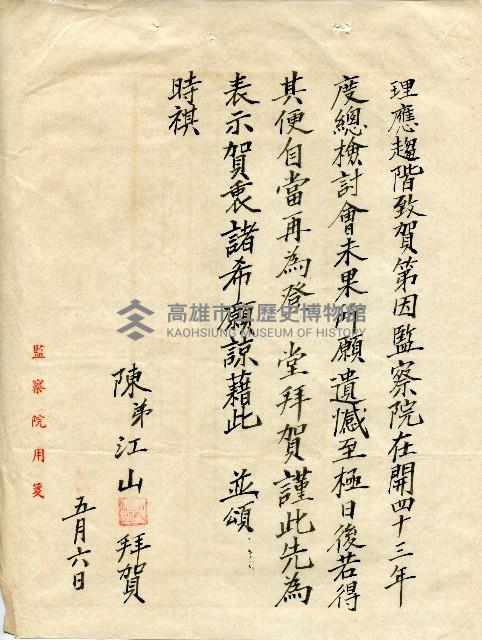 理應趨階致賀第因監察院在開四十三年
度總檢討會未果所願遺憾至極日後若得
其便自當再為登堂拜賀謹此先為
表示賀衷諸希願諒藉此 並頌
時祺
陳弟江山 拜賀
五月六日
監察院用箋
高雄市立歷史博物館
KAOHSIUNG MUSEUM OF HISTORY